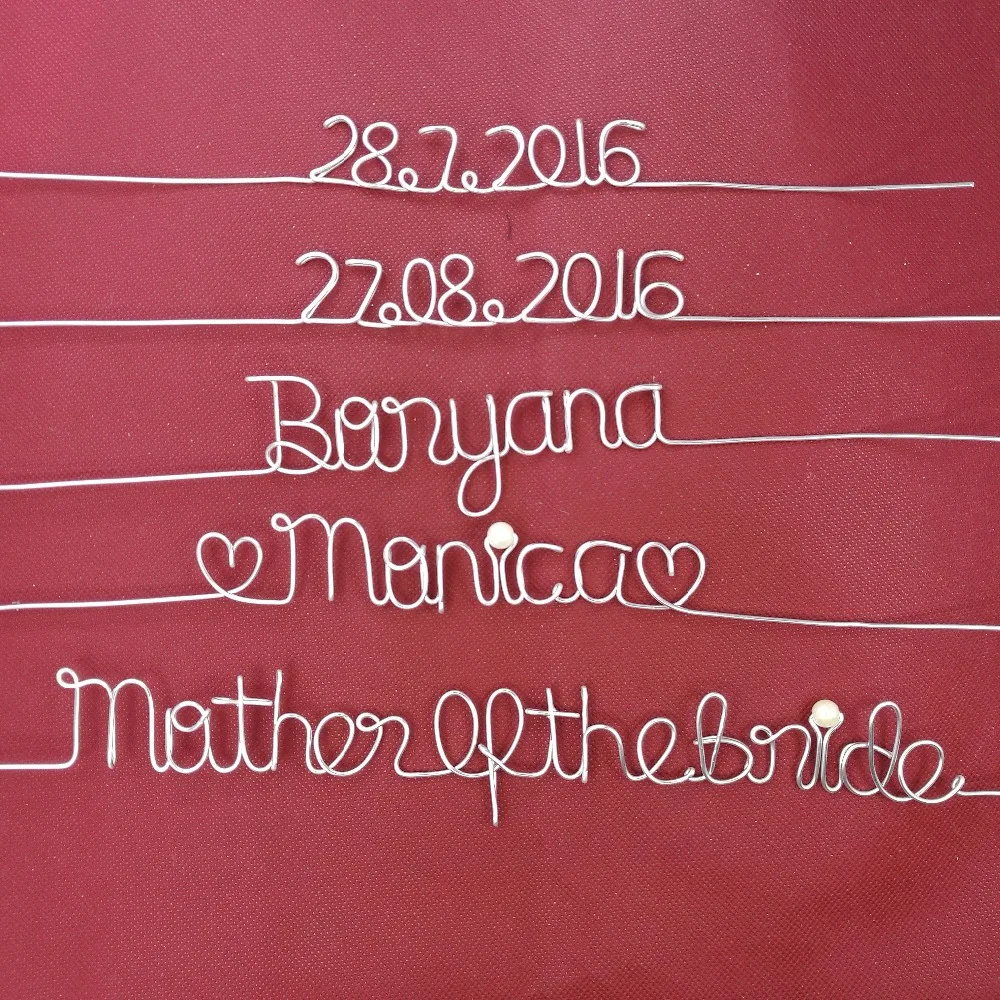 28.7.2016
27.08.2016
Boryana
Monica
Mother Of the bride